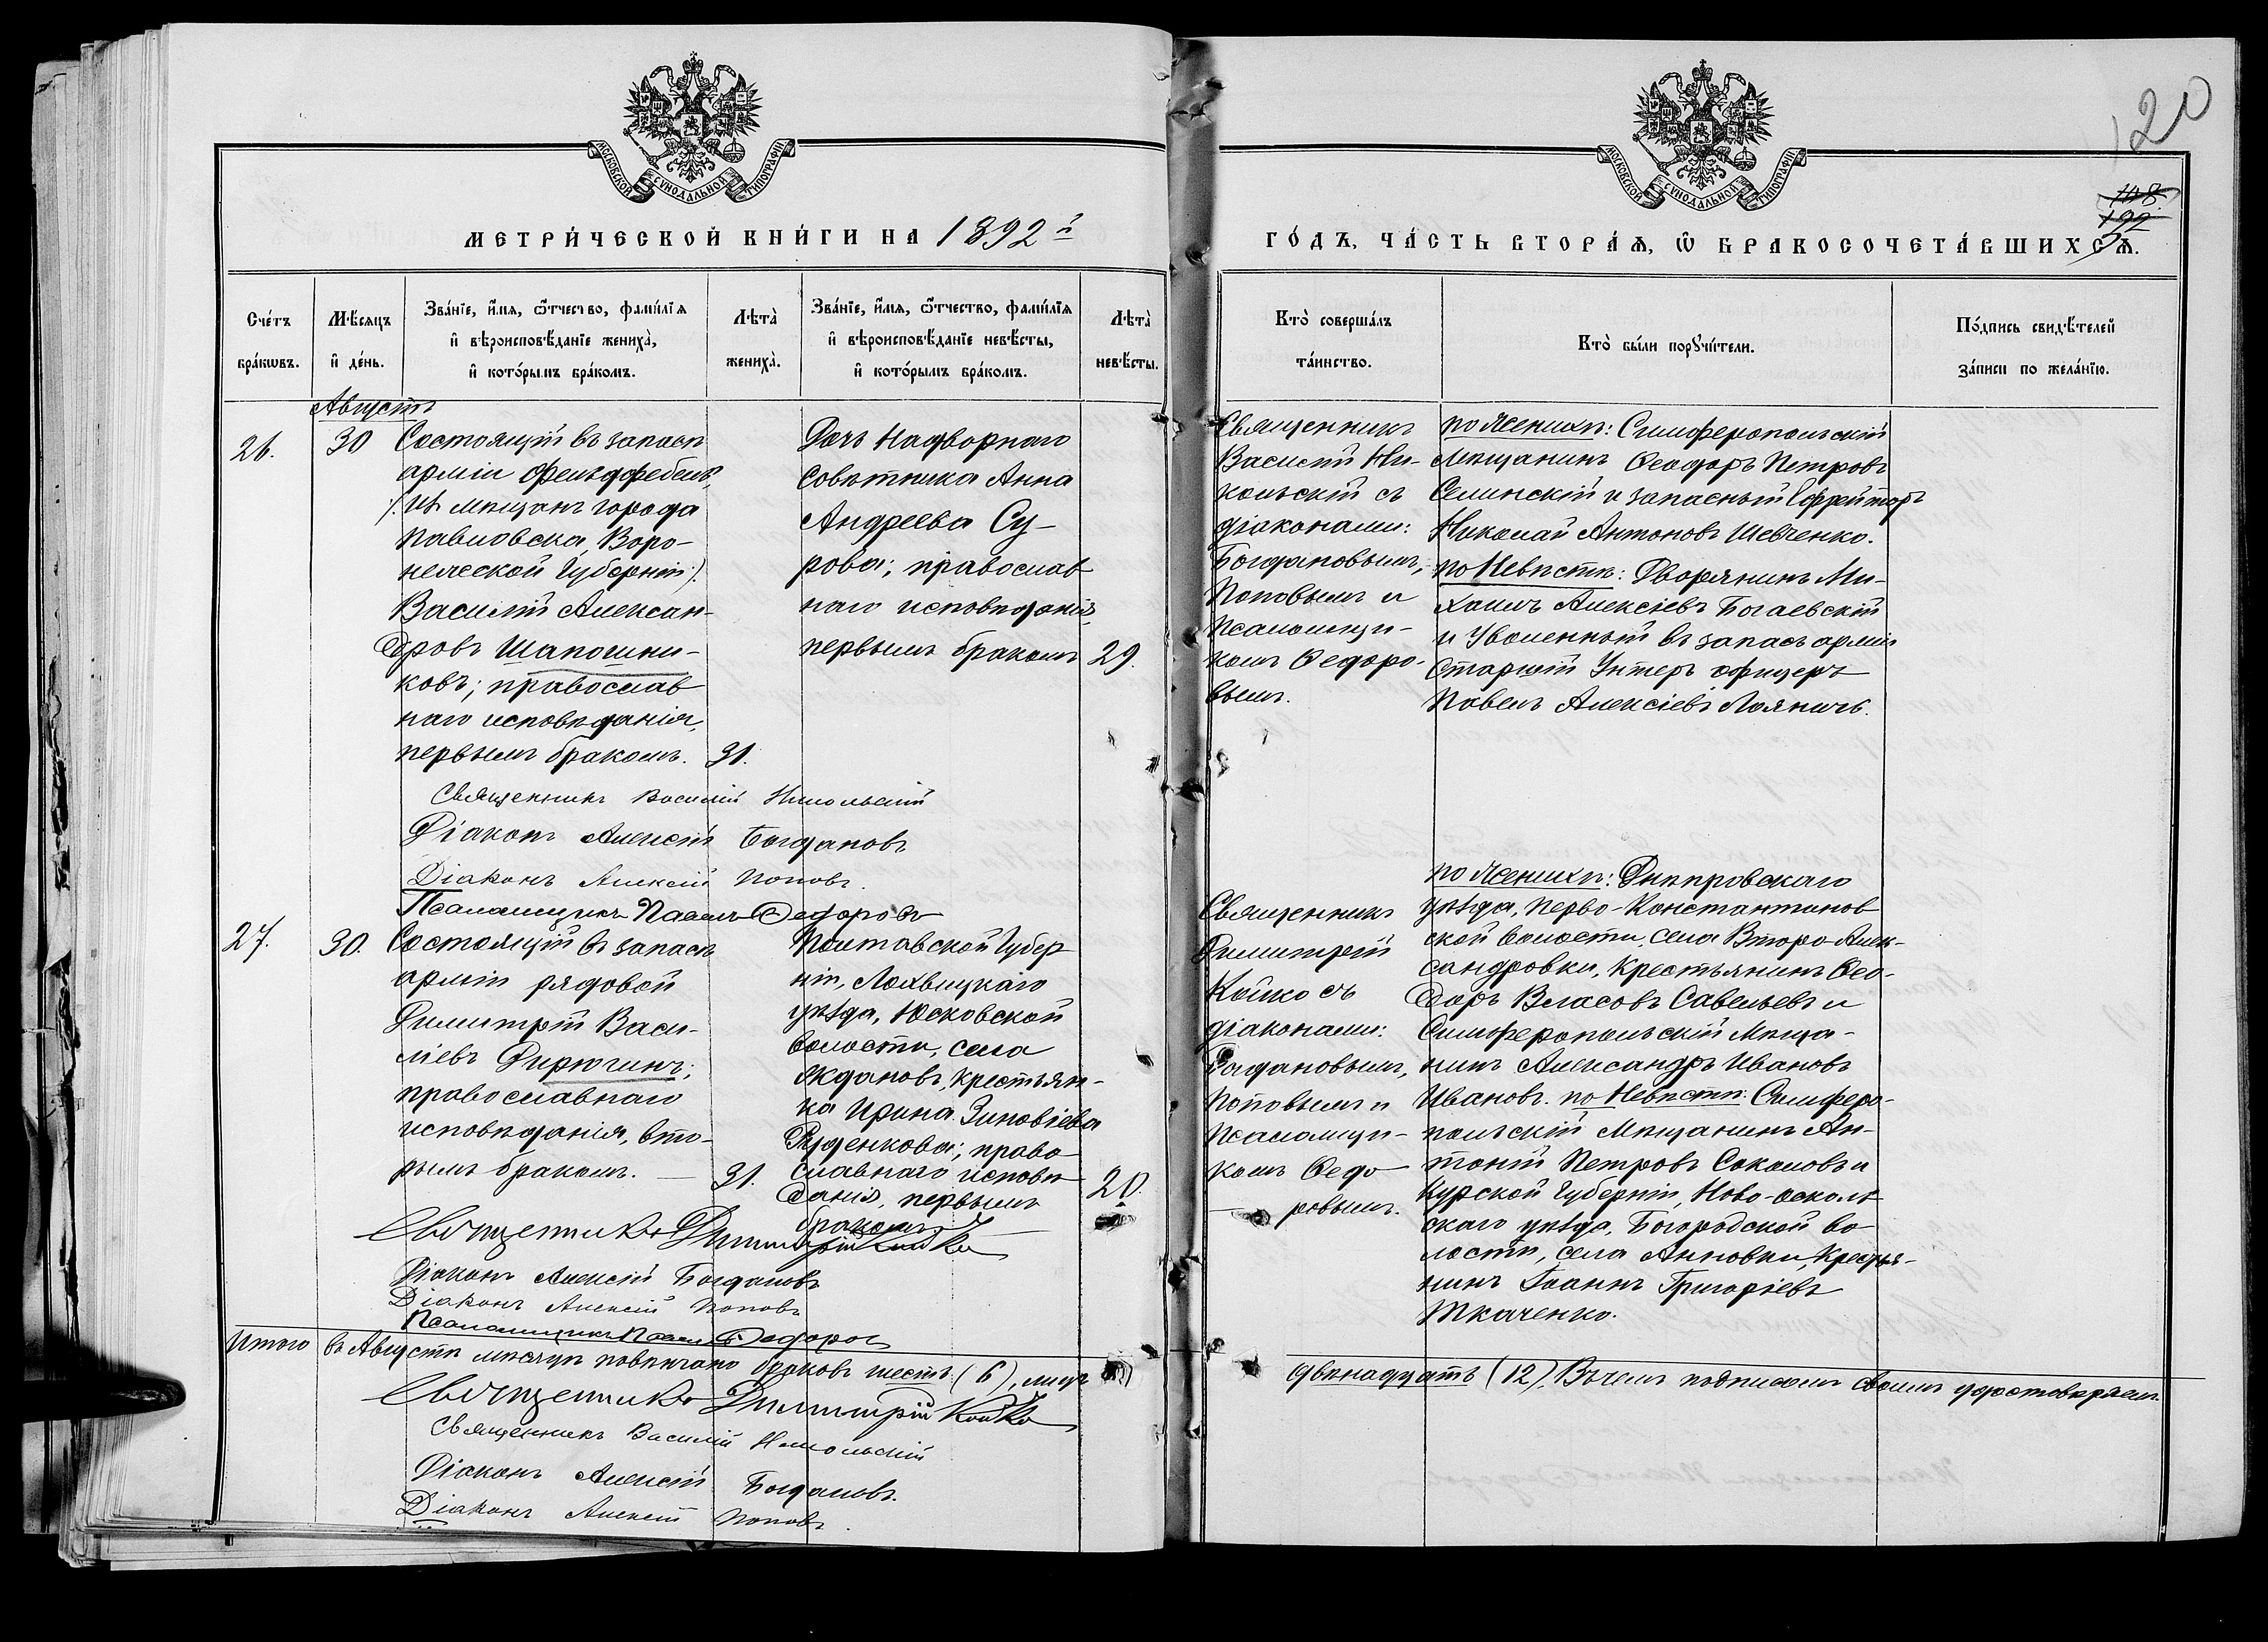 120
148
199
МОСКОВСКОЙ СУНОДАЛЬНОЙ ТИПОГРАФІИ
МОСКОВСКОЙ СУНОДАЛЬНОЙ ТИПОГРАФІИ
МЕТРИ́ЧЕСКОЙ КНИ́ГИ НА 1892й
ГО́ДЪ, ЧА́СТЬ ВТОРА́Ѧ, Ѡ҆ БРАКОСОЧЕТА́ВШИХСѦ.
Сче́тъ
бра́кѡвъ.
Мѣ́сѧцъ
и҆ де́нь.
Зва́нїе, и҆́мѧ, ѻ҆́тчество, фамѝлїѧ
и҆ вѣроисповѣ́данїе жениха̀,
и҆ кото́рымъ бра́комъ.
Лѣта̀
жениха̀.
Зва́нїе, и҆́мѧ, ѻ҆́тчество, фамѝлїѧ
и҆ вѣроисповѣ́данїе невѣ́сты,
и҆ кото́рымъ бра́комъ.
Лѣта̀
невѣ́сты.
Кто̀ соверша́лъ
та́инство.
Кто̀ бы́ли порꙋчи́тели.
По́дпись свидѣ́телей
за́писи по жела́нїю.
Августъ
26.
30
Состоящій въ запасѣ
арміи фельдфебель,
/: изъ мѣщанъ города
Павловска, Воро-
нежской Губерніи :/
Василій Алексан-
дровъ Шапошни-
ковъ; православ
наго исповѣданія,
первымъ бракомъ.
31.
Дочь Надворнаго
Совѣтника Анна
Андреева Су-
рова; православ
наго исповѣданія,
первымъ бракомъ
29.
Священникъ
Василій Ни-
кольскій съ
діаконами:
Богдановымъ,
Поповымъ и
Псаломщи-
комъ Ѳедоро-
вымъ.
по Женихѣ: Симферопольскій
Мѣщанинъ Ѳеодоръ Петровъ
Селинскій и запасный Ефрейторъ
Николай Антоновъ Шевченко.
по Невѣстѣ: Дворянинъ Ми-
хаилъ Алексіевъ Богаевскій
и Уволенный въ запасъ арміи
Старшій Унтеръ офицеръ
Павелъ Алексіевъ Лояничъ.
Священникъ Василій Никольскій
Діаконъ Алексій Богдановъ
Діаконъ Алексій Поповъ.
Псаломщикъ Павелъ Ѳедоровъ
27.
30.
Состоящій въ запасѣ
арміи рядовой
Димитрій Васи-
ліевъ Дирючинъ;
православнаго
исповѣданія, вто-
рымъ бракомъ. —
31.
Полтавской Губер
ніи, Лохвицкаго
уѣзда, Юсковской
волости, села
Ждановъ, Крестьян-
ка Ирина Зиновіева
Руденкова; право
славнаго исповѣ
данія, первымъ
бракомъ.
20.
Священникъ
Димитрій
Койко съ
діаконами:
Богдановымъ,
Поповымъ и
Псаломщи-
комъ Ѳедо
ровымъ.
по Женихѣ: Днѣпровскаго
уѣзда, Перво-Константинов
ской волости, села Второ-Алек-
сандровки, Крестьянинъ Ѳео-
доръ Власовъ Савельевъ и
Симферопольскій Мѣща-
нинъ Александръ Ивановъ
Ивановъ. по Невѣстѣ: Симферо-
польскій Мѣщанинъ Ан-
тоній Петровъ Соколовъ и
Курской Губерніи, Ново-Осколь
скаго уѣзда, Богородской во-
лости, села Анновки, Крестья-
нинъ Іоаннъ Григоріевъ
Ткаченко.
Священникъ Димитрій Койко
Діаконъ Алексій Богдановъ
Діаконъ Алексій Поповъ
Псаломщикъ Павелъ Ѳедоровъ
Итого въ Августѣ мѣсяцѣ повѣнчано браковъ шесть (6), лицъ
двѣнадцать (12). Въ чемъ подписомъ своимъ удостовѣряемъ.
Священникъ Димитрій Койко
Священникъ Василій Никольскій
Діаконъ Алексій Богдановъ.
Діаконъ Алексій Поповъ.